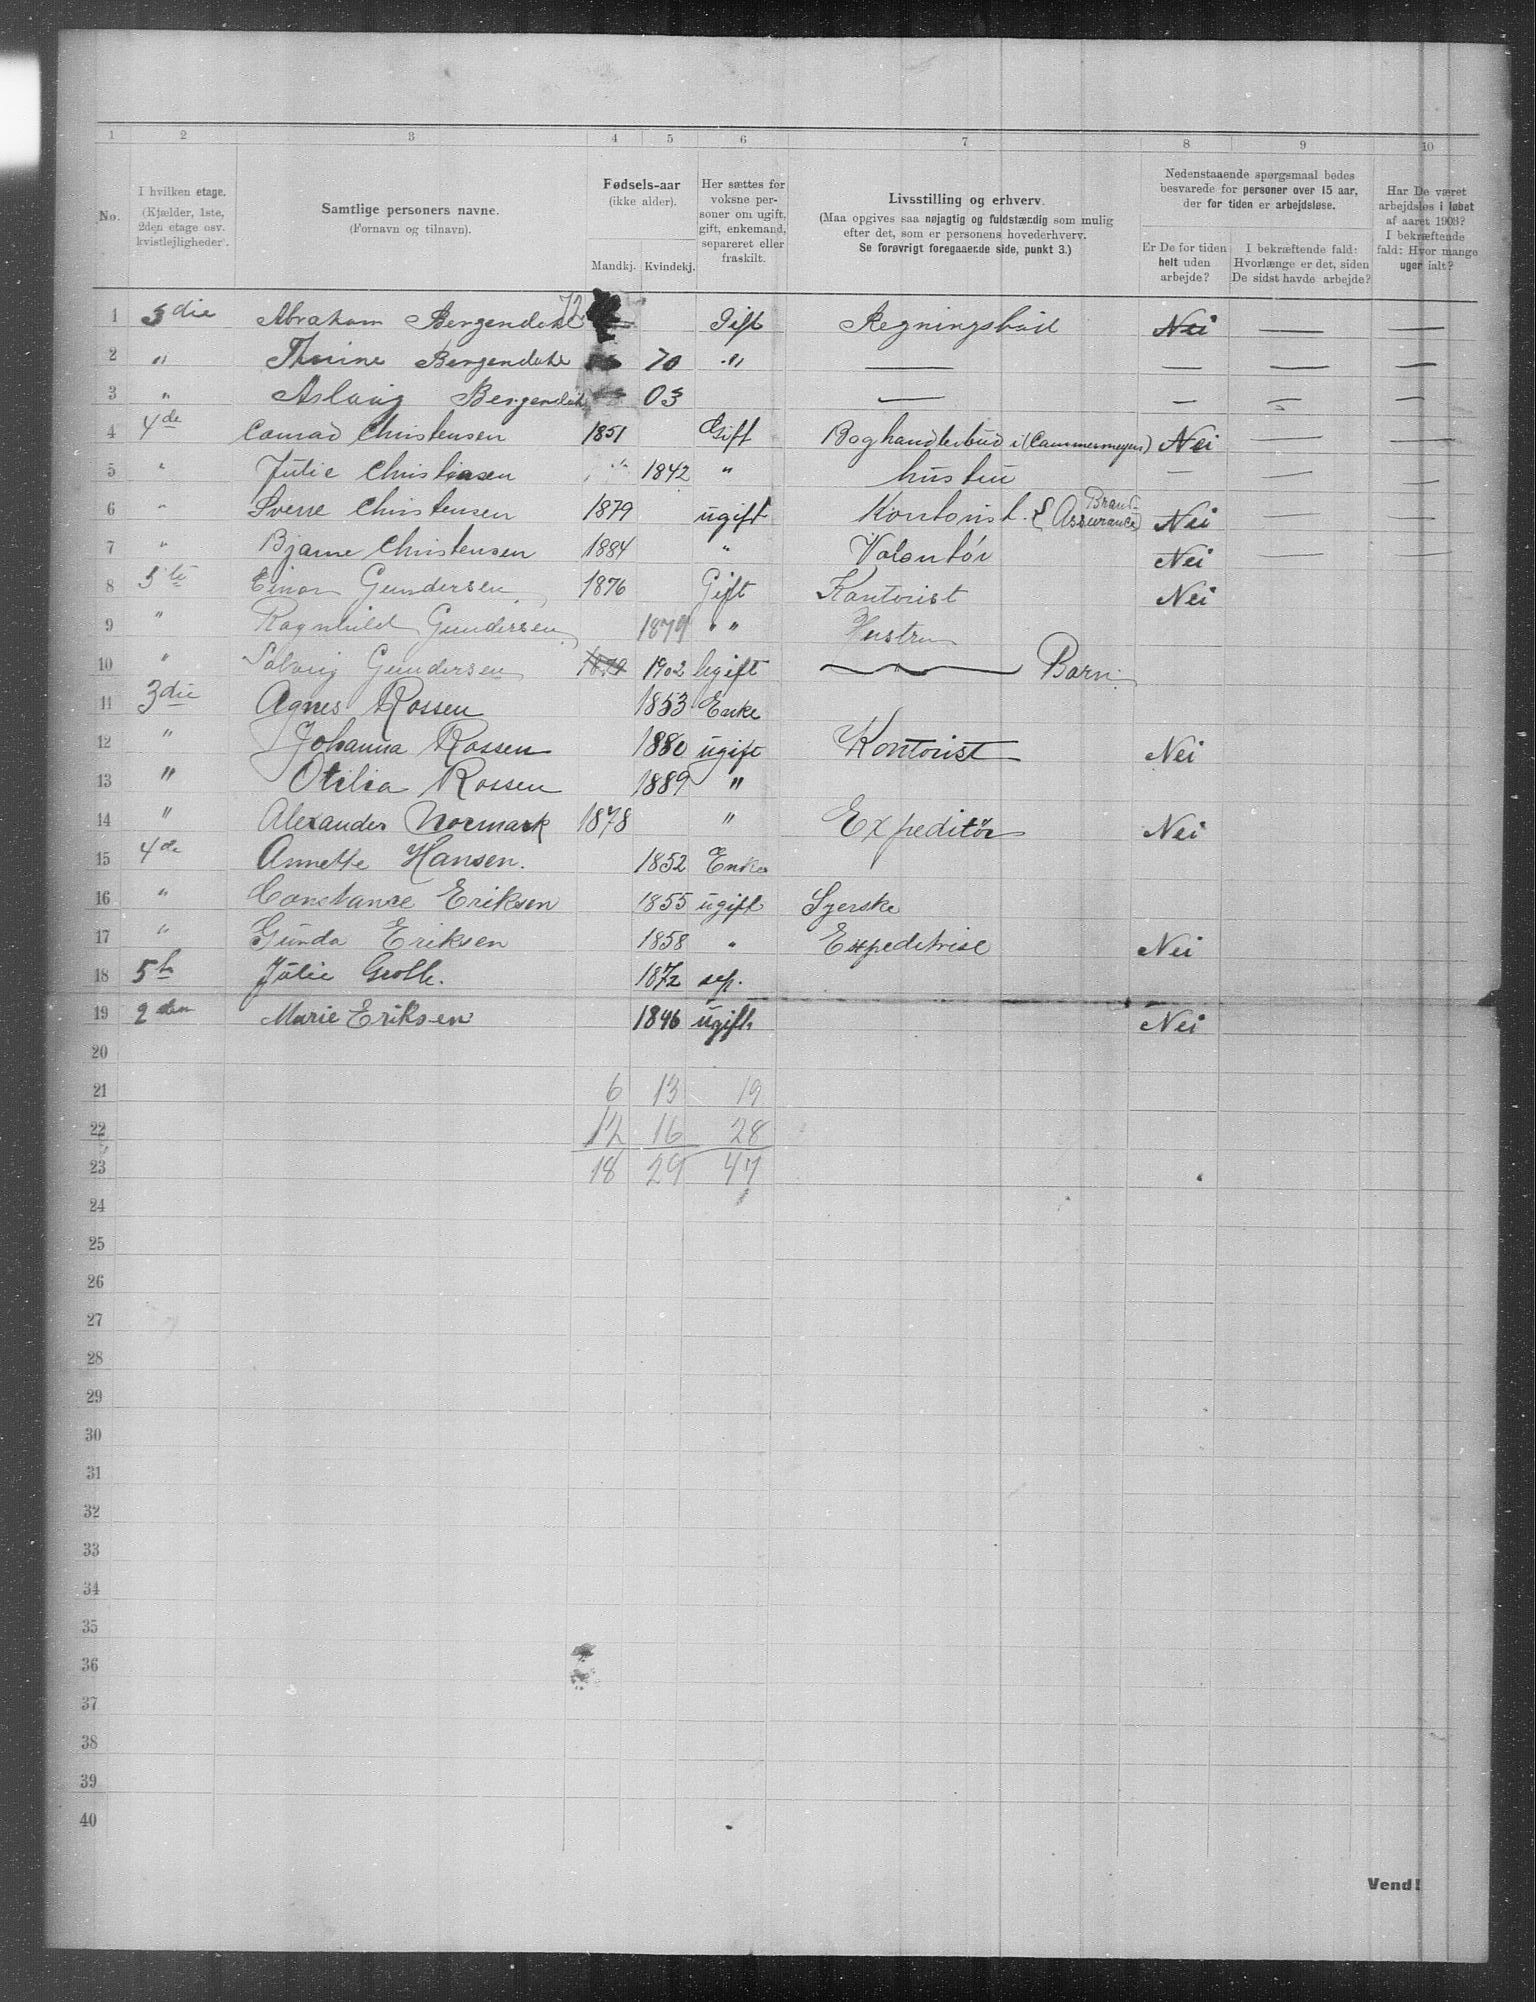 1 2 3 4 5 6 7 8 9 10
No.
I hvilken etage. (Kjælder, 1ste, 2den etage osv. kvistleiligheder).
Samtlige personers navne. (Fornavn og tilnavn).
Fødsels-aar (ikke alder).
Mandkj. Kvindekj.
Her sættes for voksne personer om ugift, gift, enkemand, separeret eller fraskilt.
Livsstilling og erhverv.
(Maa opgives saa nøjagtig og fuldstændig som mulig efter det, som er personens hovederhverv.
Se forøvrigt foregaaende side, punkt 3.)
Nedenstaaende spørgsmaal bedes besvarede for personer over 15 aar, der for tiden er arbejdsløse.
Er De for tiden helt uden arbejde?
I bekræftende fald: Hvorlænge er det, siden De sidst havde arbejde?
Har De været arbejdsløs i løbet af aaret 1903? I bekræftende fald: Hvor mange uger ialt?
1 3die Abraham Bergendahl 72 Gift Regningsbud Nei — —
2 " Thorine Bergendahl 70 " — — — —
3 " Aslaug Bergendahl 03 — — — —
4 4de Conrad Christensen 1851 Gift Boghandlerbud i (Cammermeyer) Nei — —
5 " Julie Christiansen " 1842 " hustru — — —
6 " Sverre Christensen 1879 ugift Kontorist. (Brand-Assurance) Nei — —
7 " Bjarne Christensen 1884 " Volontør Nei — —
8 5te Einar Gundersen 1876 Gift Kontorist Nei
9 " Ragnhild Gundersen 1879 " " Hustru
10 " Solveig Gundersen 1879 1902 Ugift " Barn
11 3die Agnes Rossen 1853 Enke
12 " Johanna Rossen 1880 ugift Kontorist Nei
13 " Otilia Rossen 1889 "
14 " Alexander Normark 1878 " Expeditør Nei
15 4de Annette Hansen. 1852 Enke
16 " Constance Eriksen 1855 ugift Syerske
17 " Gunda Eriksen 1858 " Expeditrise Nei
18 5te Julie Groth. 1872 sep.
19 2den Marie Eriksen 1846 ugift. Nei
20
21 6 13 19
22 12 16 28
23 18 29 47
24
25
26
27
28
29
30
31
32
33
34
35
36
37
38
39
40
Vend!